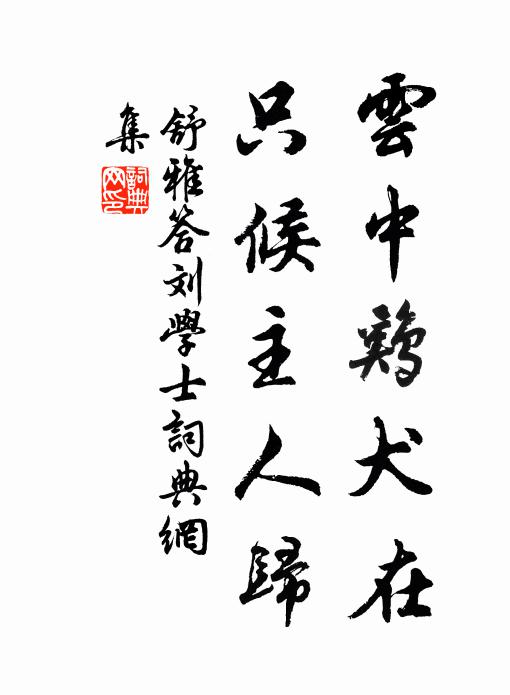 雲中鷄犬在
只候主人歸
舒雅答刘學士詞典網
集
詞典
网印